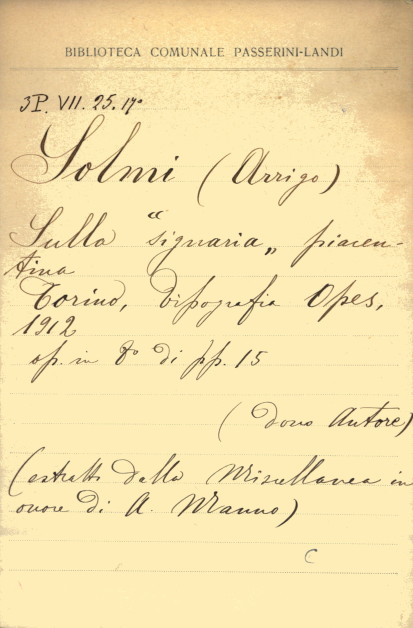 BIBLIOTECA COMUNALE PASSERINI-LANDI
3P. VII. 25. 17°
Solmi (Arrigo)
Sulla "signaria" piacen-
tina
Torino, Tipografia Opes,
1912
op. in 8° di pp. 15
(dono Autore)
(estratto dalla Miscellanea in
onore di A. Manno)
C